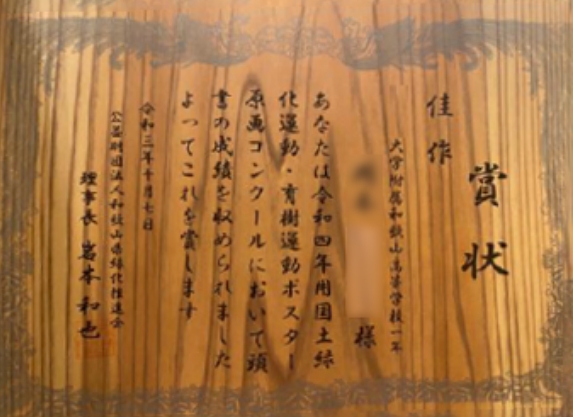 賞状
佳作
大学附属和歌山高等学校一年
様
あなたは令和四年用国土緑
化運動・育樹運動ポスター
原画コンクールにおいて頭
書の成績を収められました
よってこれを賞します
令和三年十月七日
公益財団法人和歌山県緑化推進会
理事長 岩本 和也